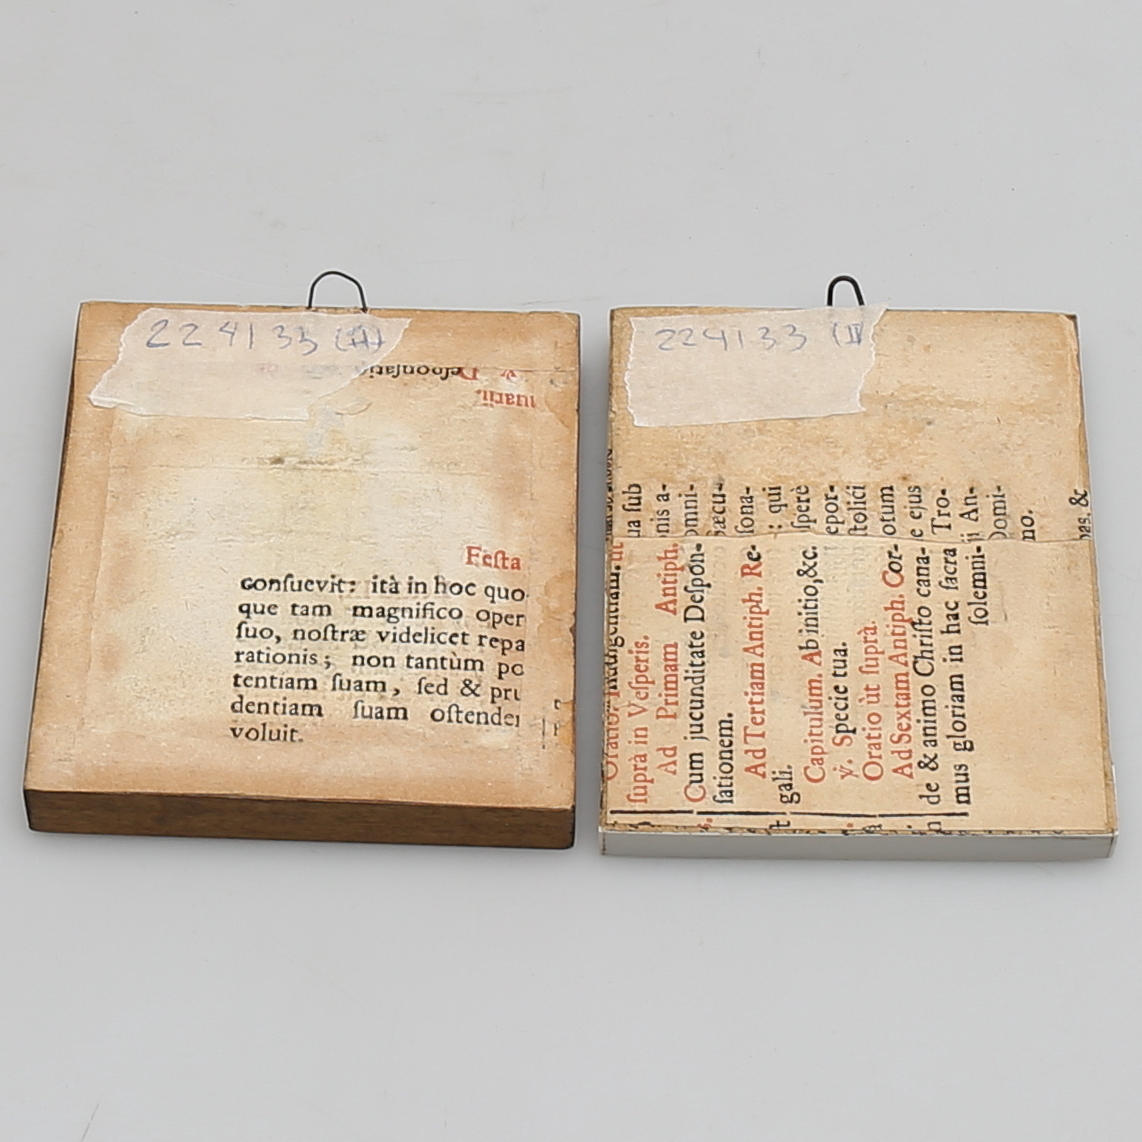 224133 (A)
Desponsatio
uarii.
Festa
consuevit: ità in hoc quo-
que tam magnifico oper
suo, nostræ videlicet repa
rationis; non tantùm po
tentiam suam, sed & pru
dentiam suam ostender
voluit.
224133 (II)
suprà in Vesperis.
Ad Primam Antiph.
Cum jucunditate Despon-
sationem.
Ad Tertiam Antiph. Re-
gali.
Capitulum. Ab initio, &c.
℣. Specie tua.
Oratio ùt suprà.
Ad Sextam Antiph. Cor-
de & animo Christo cana-
mus gloriam in hac sacra
solemni-
ua sub
nis a-
omni-
sæcu-
sona-
: qui
spere
epor-
stolici
otum
e ejus
Tro-
ii An-
Domi-
no.
&